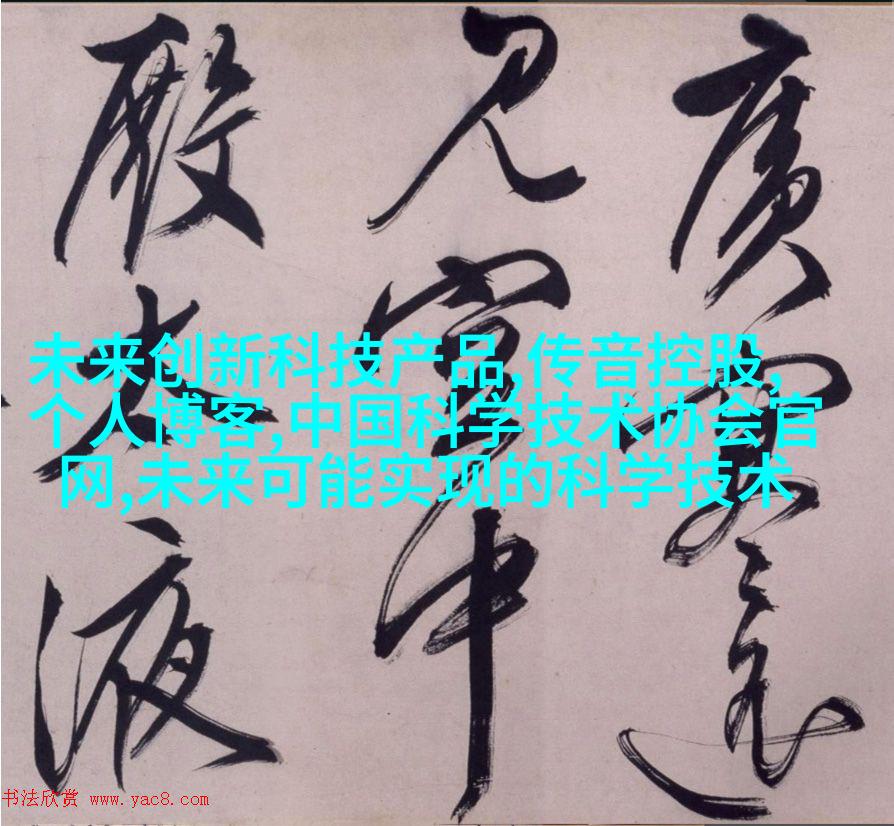 廣寒
見空中
殿太液
未来创新科技产品,传音控股,
个人博客,中国科学技术协会官
网,未来可能实现的科学技术
书法欣赏 www.yac8.com